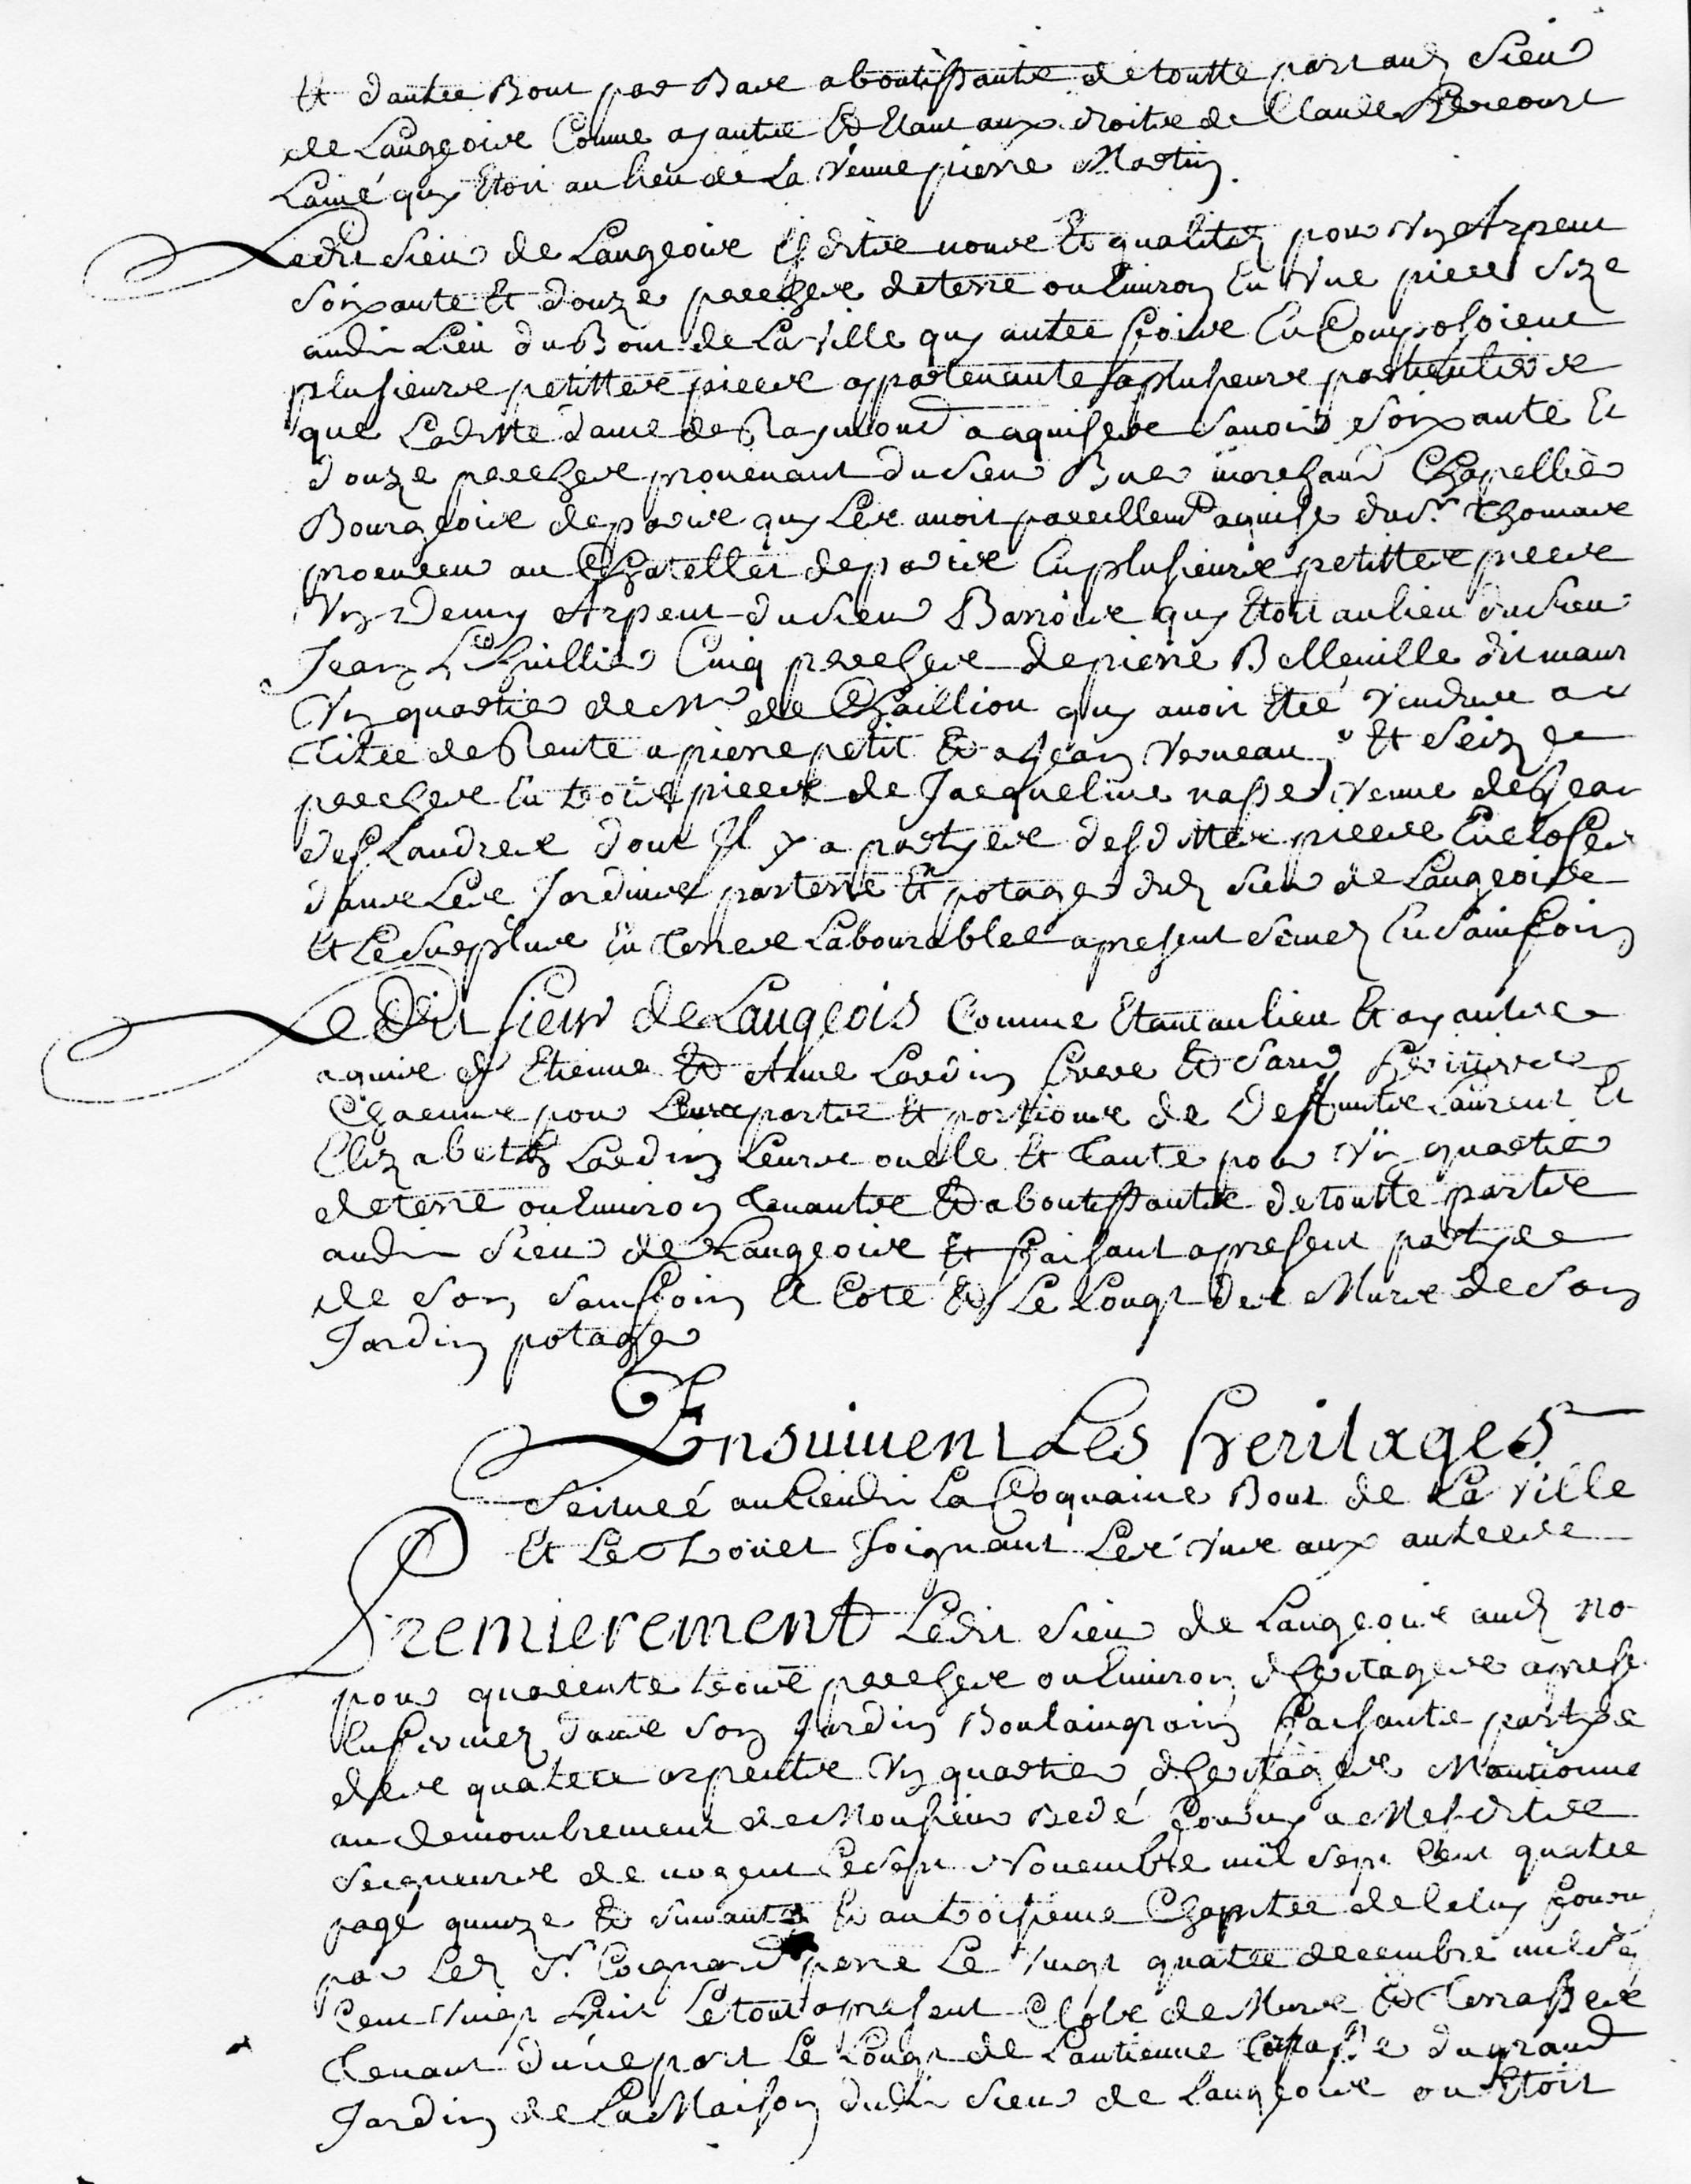 Et dautre Bout par Bas aboutissants de toutte part aud Sieur
de Langeois Comme ayants Et Etant aux droits de Claude
Lainé quy Etoit au lieu de La Veuve pierre Martin.
Ledit Sieur de Langeois Esdits noms Et qualitez pour Vn Arpent
Soixante Et douze perches de terre ou Environ En Vne piece Size
audit Lieu du Bout de La Ville quy autre fois En Composoient
plusieurs petittes pieces appartenantes a plusieurs particuliers
que Laditte dame de Raymond a aquises Savoir Soixante Et
douze perches provenant du Sieur marchand Chapellier
Bourgeois de paris quy Les avoit pareillemt aquise du Sr. Thomas
procureur au Chatellet de paris En plusieurs petittes pieces
Vn Demy Arpent du Sieur Barrois quy Etoit au lieu du Sieur
Jean Lhuillier Cinq perches de pierre Belleville dit maur
Vn quartier de Mr de Chaillion quy avoit Eté Vendus a
Titre de Rente a pierre petit Et a Jean Verneau, Et Seize
perches En trois pieces de Jacqueline Veuve de Jean
desLandres dont Il y a partyes desdittes pieces Encloses
dans Les Jardins parterre Et potager dud Sieur de Langeois
Et Le Surplus En Terres Labourables apresent Semez En Sainfoin
Ledit Sieur de Langeois Comme Etant au lieu Et ayants
aquis d Etienne Et Anne Lardin frere Et Sœur heritiers
Chacuns pour Leurs parts Et portions de Deffunts Laurent Et
Elizabeth Lardin Leurs oncle Et Tante pour Vn quartier
de terre ou Environ Tenants Et aboutissants de toutte parts
audit Sieur de Langeois Et faisant apresent partye
de Son Sainfoin A Coté Et Le Longt des Murs de Son
Jardin potager
Ensuivent Les heritages
Scitueé au Lieudit La Coquaine Bout de La Ville
Et Le Joignant Les Vns aux autres
Premierement Ledit Sieur de Langeois aud no
pour quarente trois perches ou Environ dheritages aprese
Enfermez dans Son Jardin Boulaingrain faisants partye
des quatre arpents Vn quartier dheritages Mantionne
au denombrement de Monsieur Bedé fourny a Mesdits
Seigneurs de nogent Le Sept Novembre mil Sept Cent quatre
page quinze Et Suivante Et au troisieme Chapitre de Celuy fourn
par Led Sr. Coignard pere Le Vingt quatre decembre mil Se
Cent Vingt huit Le tout apresent Clos de Murs Et Terrasses
Tenant dune part Le Longt de Lantienne du grand
Jardin de La Maison dudit Sieur de Langeois ou Etoit